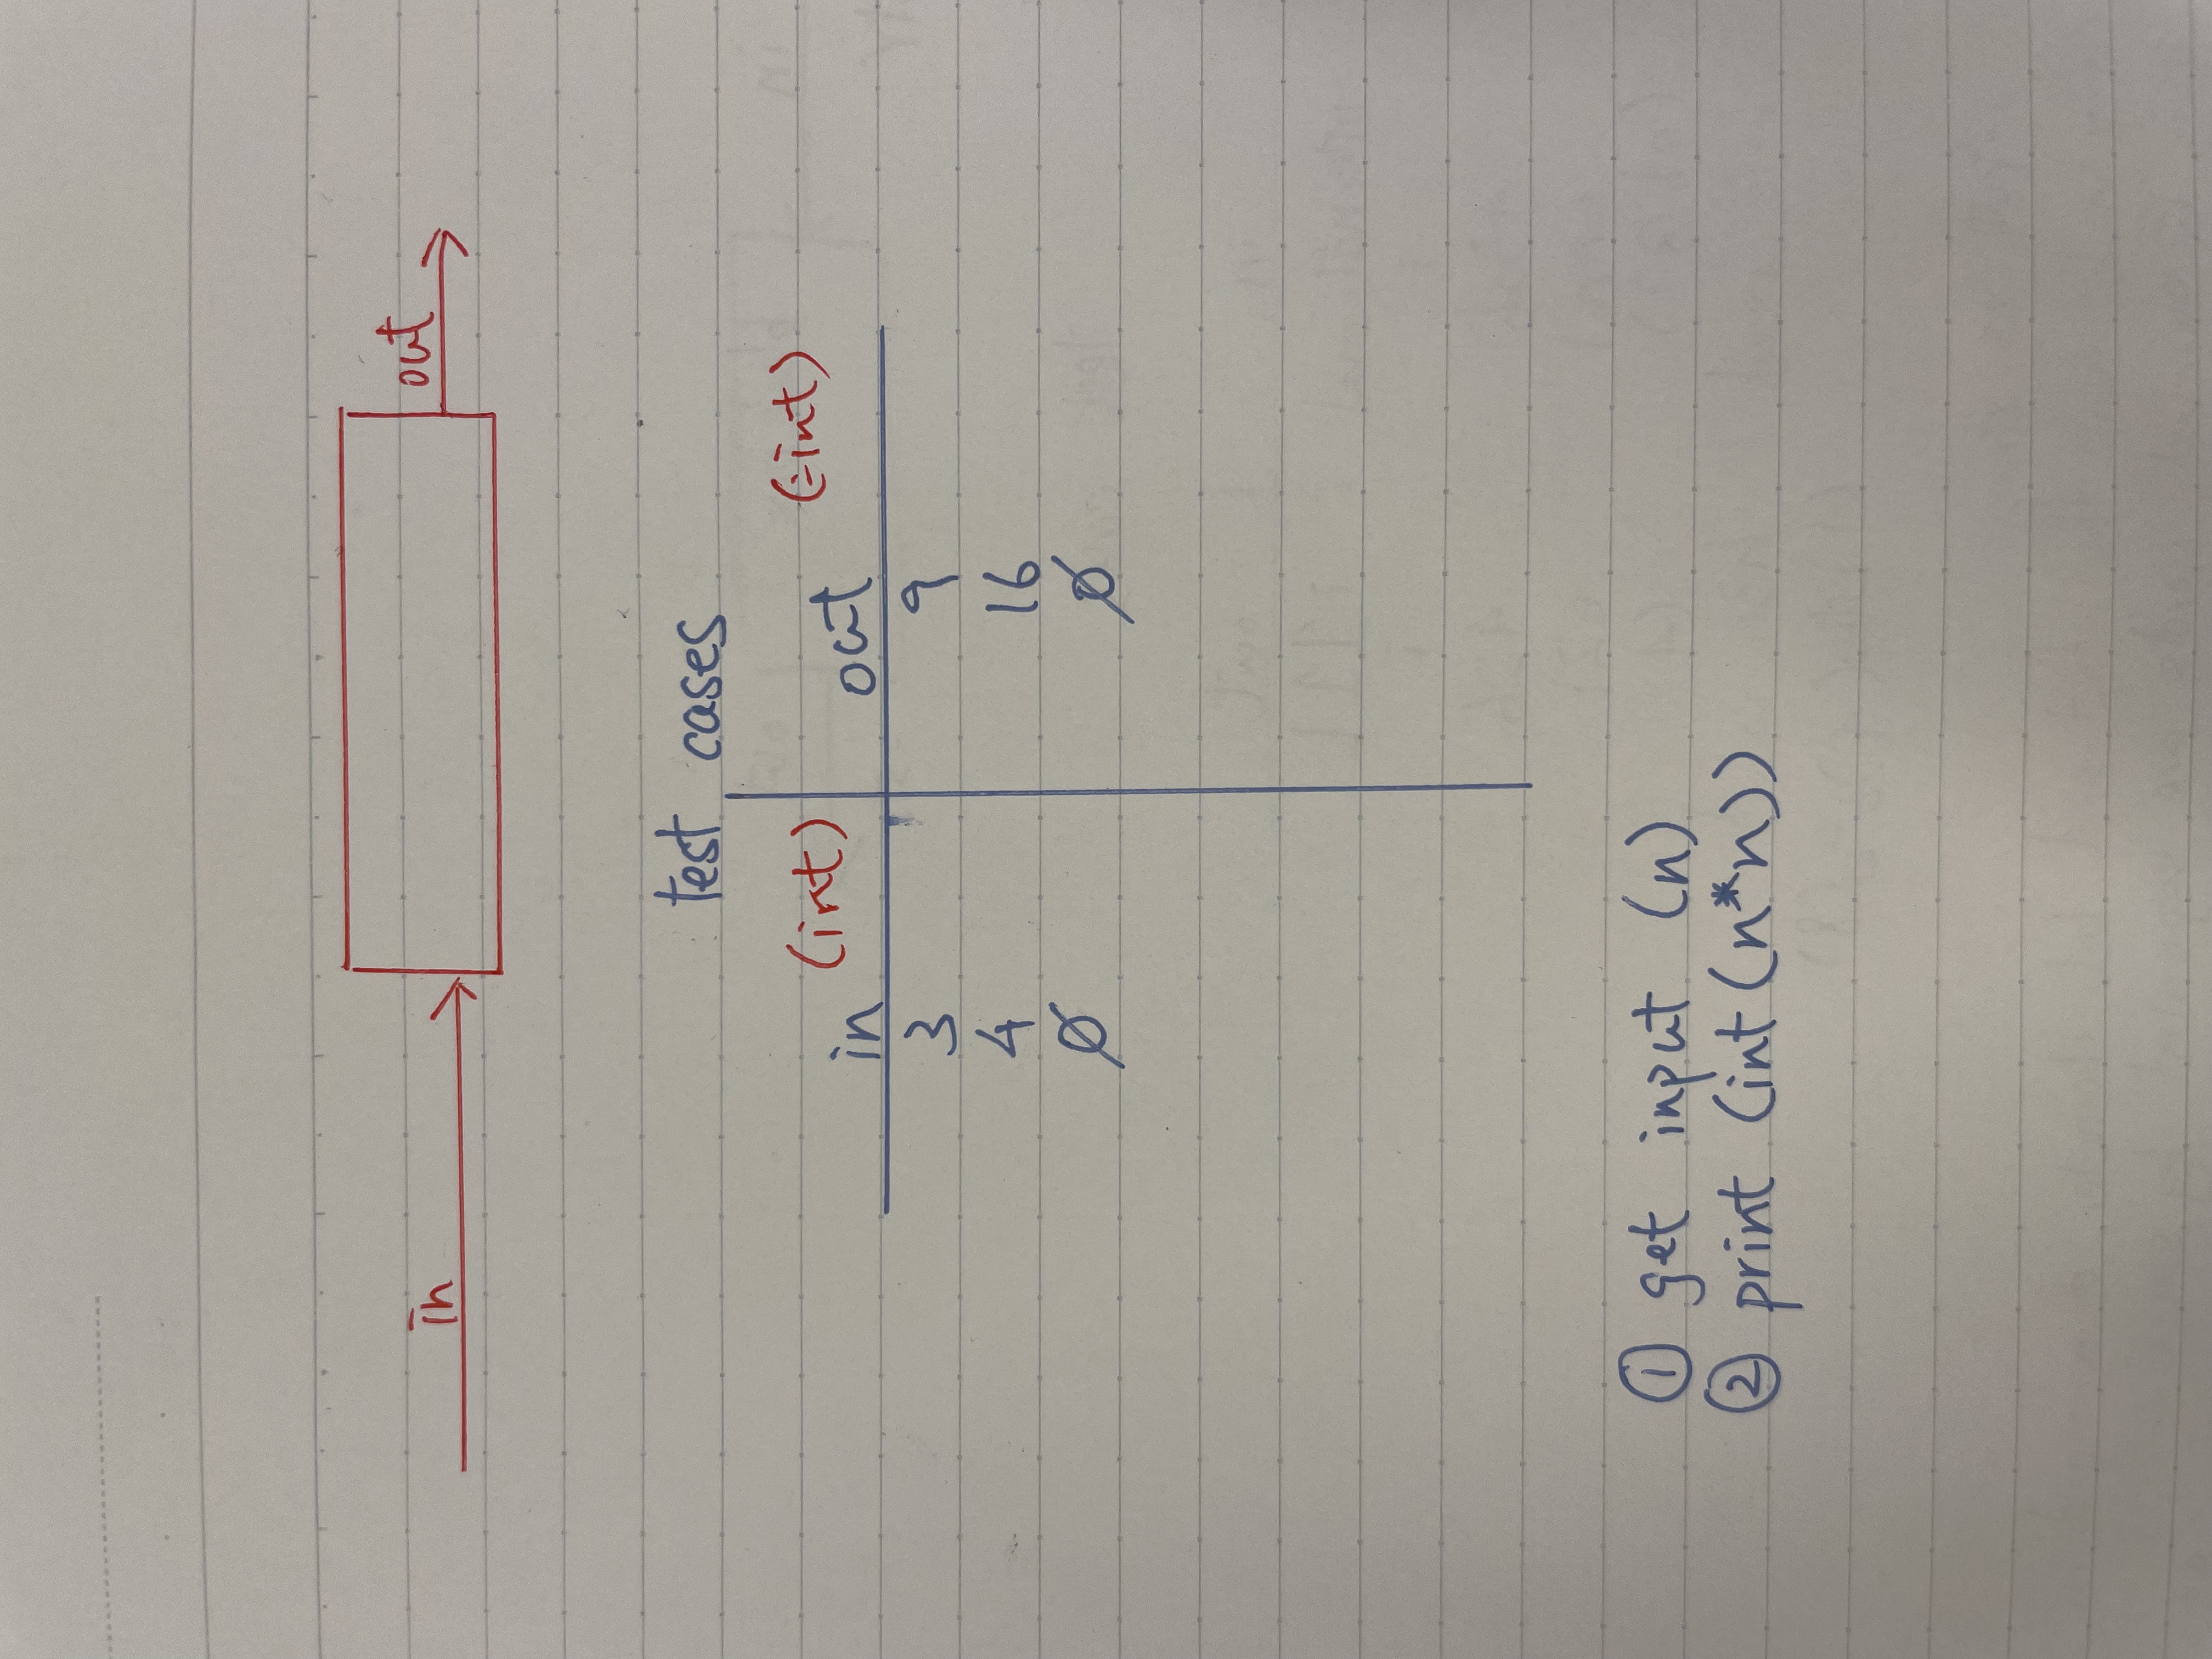 in out
test cases
in (int) out (int)
3 9
4 16
0 0
① get input (n)
② print (int (n*n))